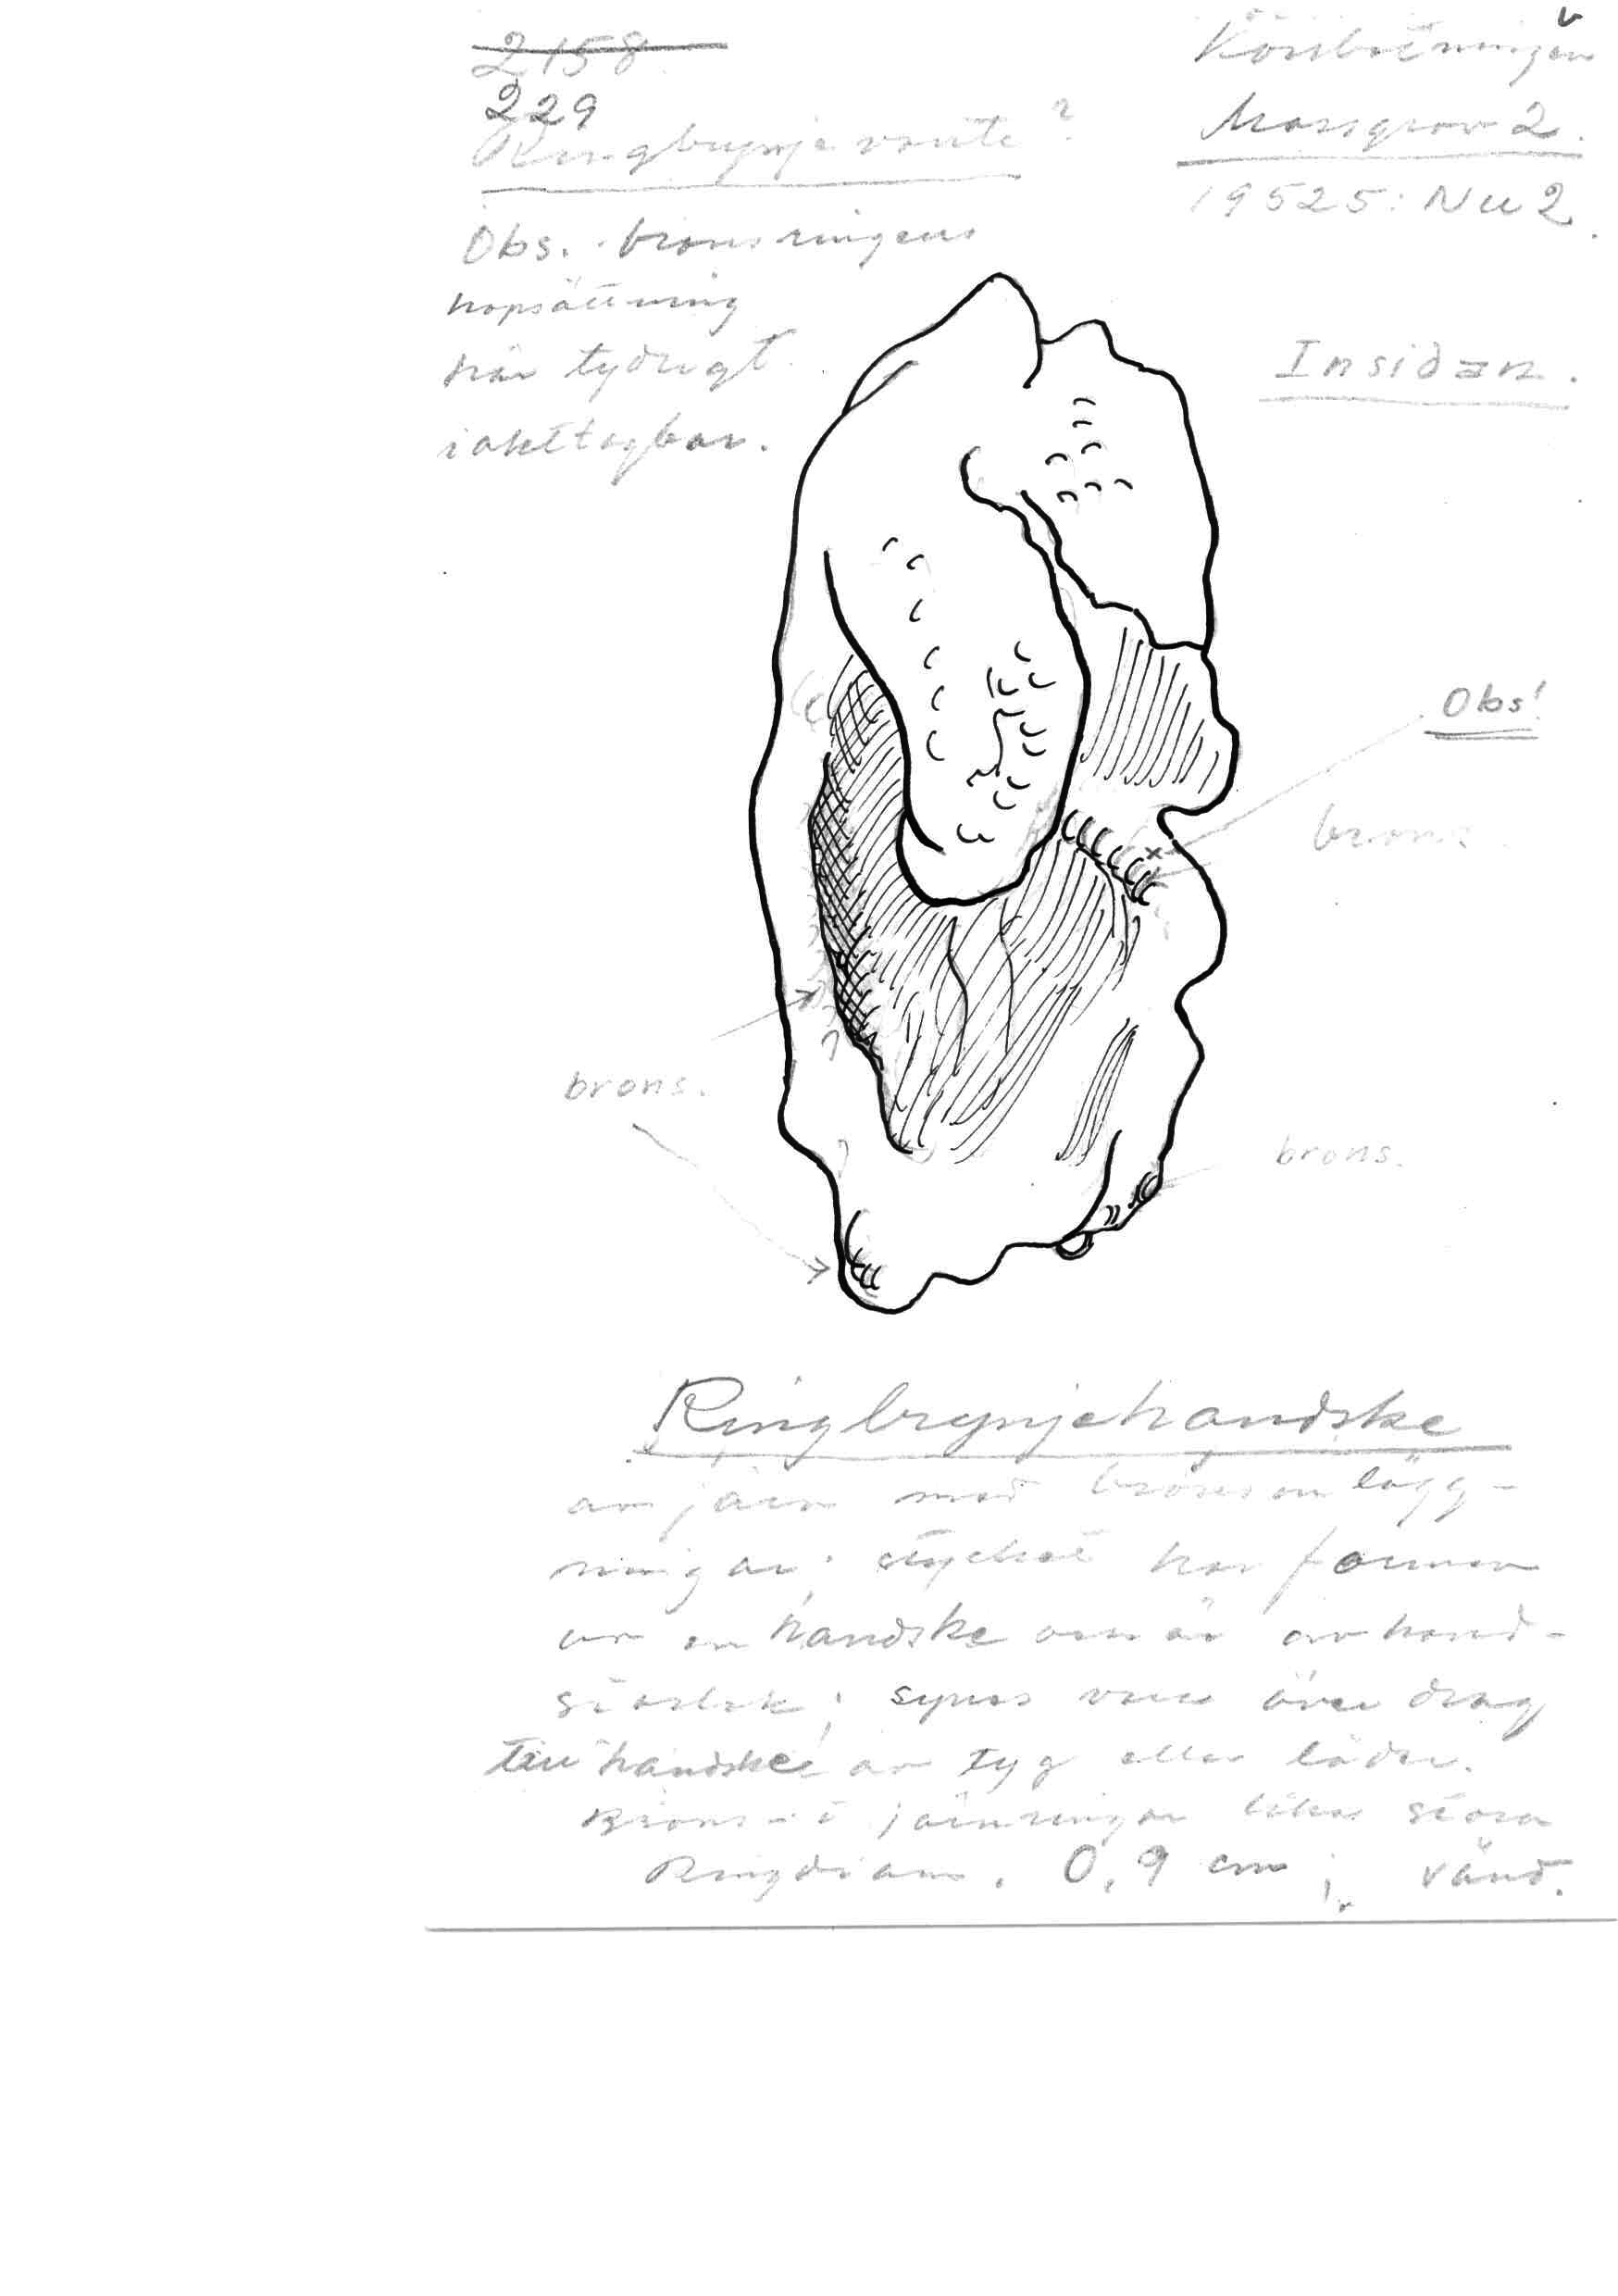 2158
229
Ringbrynje vante?
Obs. bronsringens
hopsättning
här tydligt
iakttagbar.
Korsbetningen
Massgrav 2.
19525: Nu 2.
Insidan.
Obs!
brons
brons.
brons.
Ringbrynjehandske
av järn med bronsomlägg-
ningar; stycket har formen
av en handske om är av hand-
storlek; synes vara över drag
till handske av tyg eller läder.
Brons- o järnringar lika stora
Ringdiam. 0,9 cm; vänd.